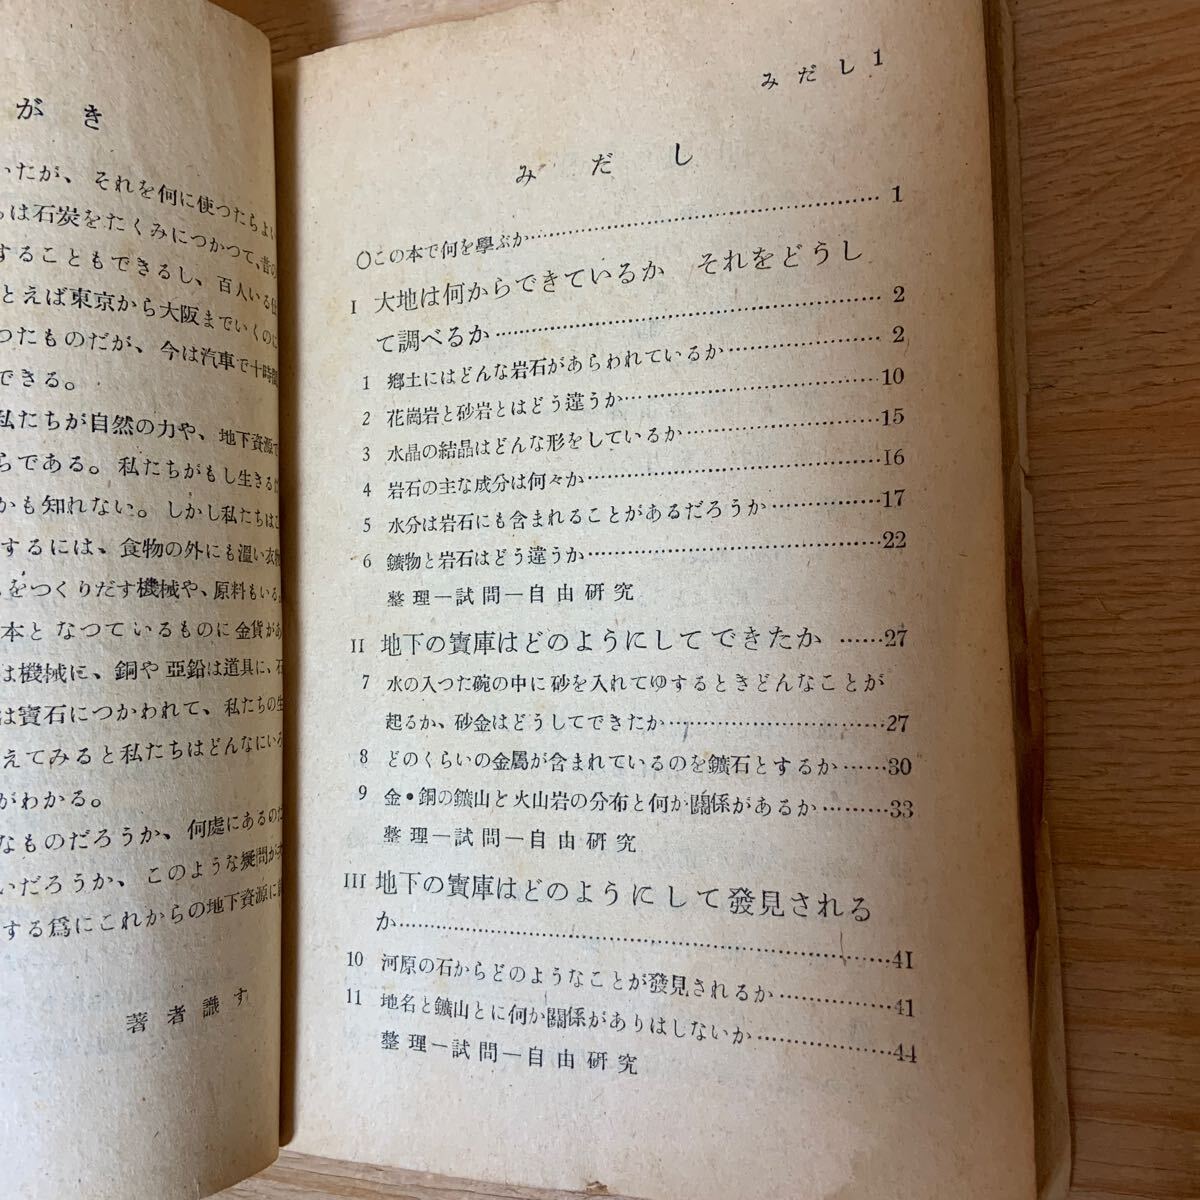 がき
いたが、それを何に使つたらよい
は石炭をたくみにつかつて、昔の
することもできるし、百人いる仕
とえば東京から大阪までいくのに
つたものだが、今は汽車で十時間
できる。
私たちが自然の力や、地下資源で
らである。私たちがもし生きるだ
かも知れない。しかし私たちはこ
するには、食物の外にも溫い衣
をつくりだす機械や、原料もいる。
本となつているものに金貨があ
は機械に、銅や亞鉛は道具に、石
は寶石につかわれて、私たちの生
えてみると私たちはどんなにいろ
がわかる。
なものだろうか、何處にあるのだ
いだろうか、このような疑問が
する爲にこれからの地下資源に
著者識す
みだし 1
みだし
○この本で何を學ぶか……………1
I 大地は何からできているか それをどうし
て調べるか……………2
1 鄕土にはどんな岩石があらわれているか……………2
2 花崗岩と砂岩とはどう違うか……………10
3 水晶の結晶はどんな形をしているか……………15
4 岩石の主な成分は何々か……………16
5 水分は岩石にも含まれることがあるだろうか……………17
6 鑛物と岩石はどう違うか……………22
整理―試問―自由研究
II 地下の寶庫はどのようにしてできたか……27
7 水の入つた碗の中に砂を入れてゆするときどんなことが
起るか、砂金はどうしてできたか……………27
8 どのくらいの金屬が含まれているのを鑛石とするか……30
9 金・銅の鑛山と火山岩の分布と何か關係があるか………33
整理―試問―自由研究
III 地下の寶庫はどのようにして發見される
か……………41
10 河原の石からどのようなことが發見されるか……………41
11 地名と鑛山とに何か關係がありはしないか……………44
整理―試問―自由研究